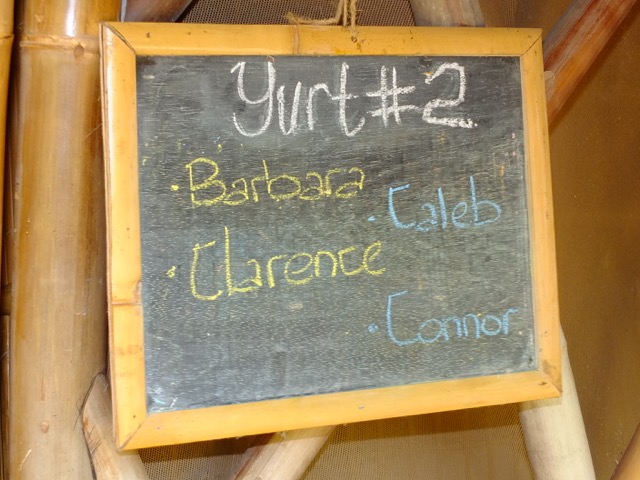 Yurt #2
• Barbara
• Caleb
• Clarence
• Connor